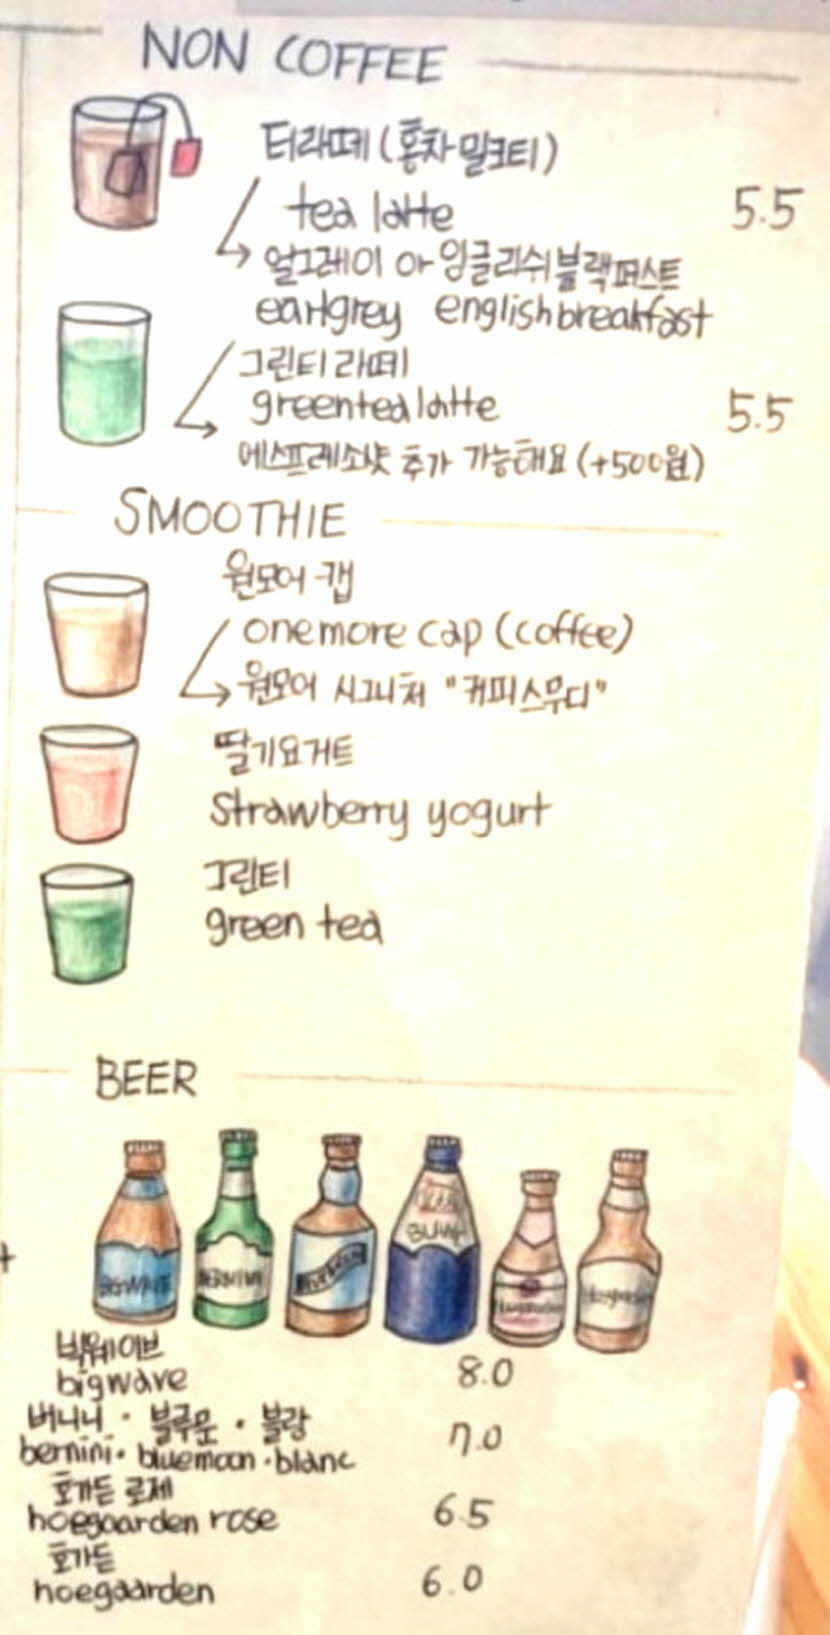 NON COFFEE
티라떼 (홍차밀크티)
tea latte 5.5
얼그레이 or 잉글리쉬블랙퍼스트
earlgrey english breakfast
그린티 라떼
greentea latte 5.5
에스프레소샷 추가 가능해요 (+500원)
SMOOTHIE
원모어-캡
onemore cap (coffee)
원모어 시그니처 "커피스무디"
딸기요거트
Strawberry yogurt
그린티
green tea
BEER
BIGWAVE BERNINI BLUEMOON BLANC Hoegaarden
빅웨이브
bigwave 8.0
버니니 · 블루문 · 블랑
bernini · bluemoon · blanc 7.0
호가든 로제
hoegaarden rose 6.5
호가든
hoegaarden 6.0